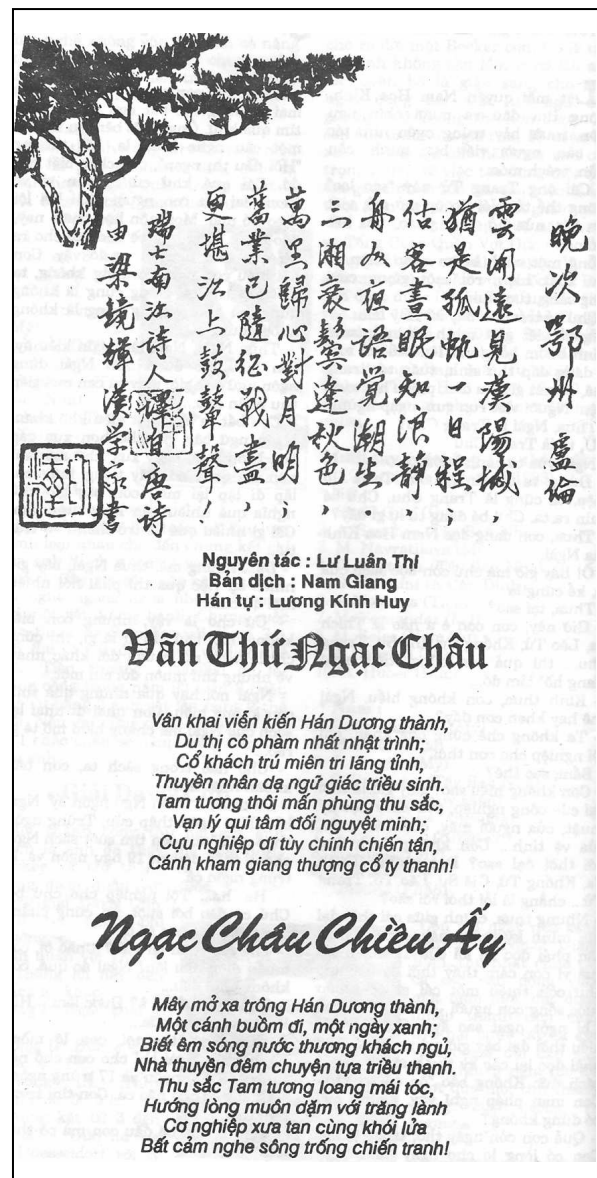 晚次鄂州 盧倫
雲開遠見漢陽城,
猶是孤帆一日程;
估客晝眠知浪靜
舟人夜語覺潮生
三湘衰鬢逢秋色,
萬里歸心對月明;
舊業已隨征戰盡
更堪江上鼓鼙聲!
瑞士南江詩 譯自唐詩
由梁境輝漢学家書
Nguyên tác : Lư Luân Thi
Bản dịch : Nam Giang
Hán tự : Lương Kính Huy
Vãn Thứ Ngạc Châu
Vân khai viễn kiến Hán Dương thành,
Du thị cô phàm nhất nhật trình;
Cổ khách trú miên tri lãng tỉnh,
Thuyền nhân dạ ngữ giác triều sinh.
Tam tương thôi mấn phùng thu sắc,
Vạn lý qui tâm đối nguyệt minh;
Cựu nghiệp dĩ tùy chinh chiến tận,
Cánh kham giang thượng cổ ty thanh!
Ngạc Châu Chiêu Ấy
Mây mở xa trông Hán Dương thành,
Một cánh buồm đi, một ngày xanh;
Biết êm sóng nước thương khách ngủ,
Nhà thuyền đêm chuyện tựa triều thanh.
Thu sắc Tam tương loang mái tóc,
Hướng lòng muôn dặm với trăng lành
Cơ nghiệp xưa tan cùng khói lửa
Bất cảm nghe sông trống chiến tranh!